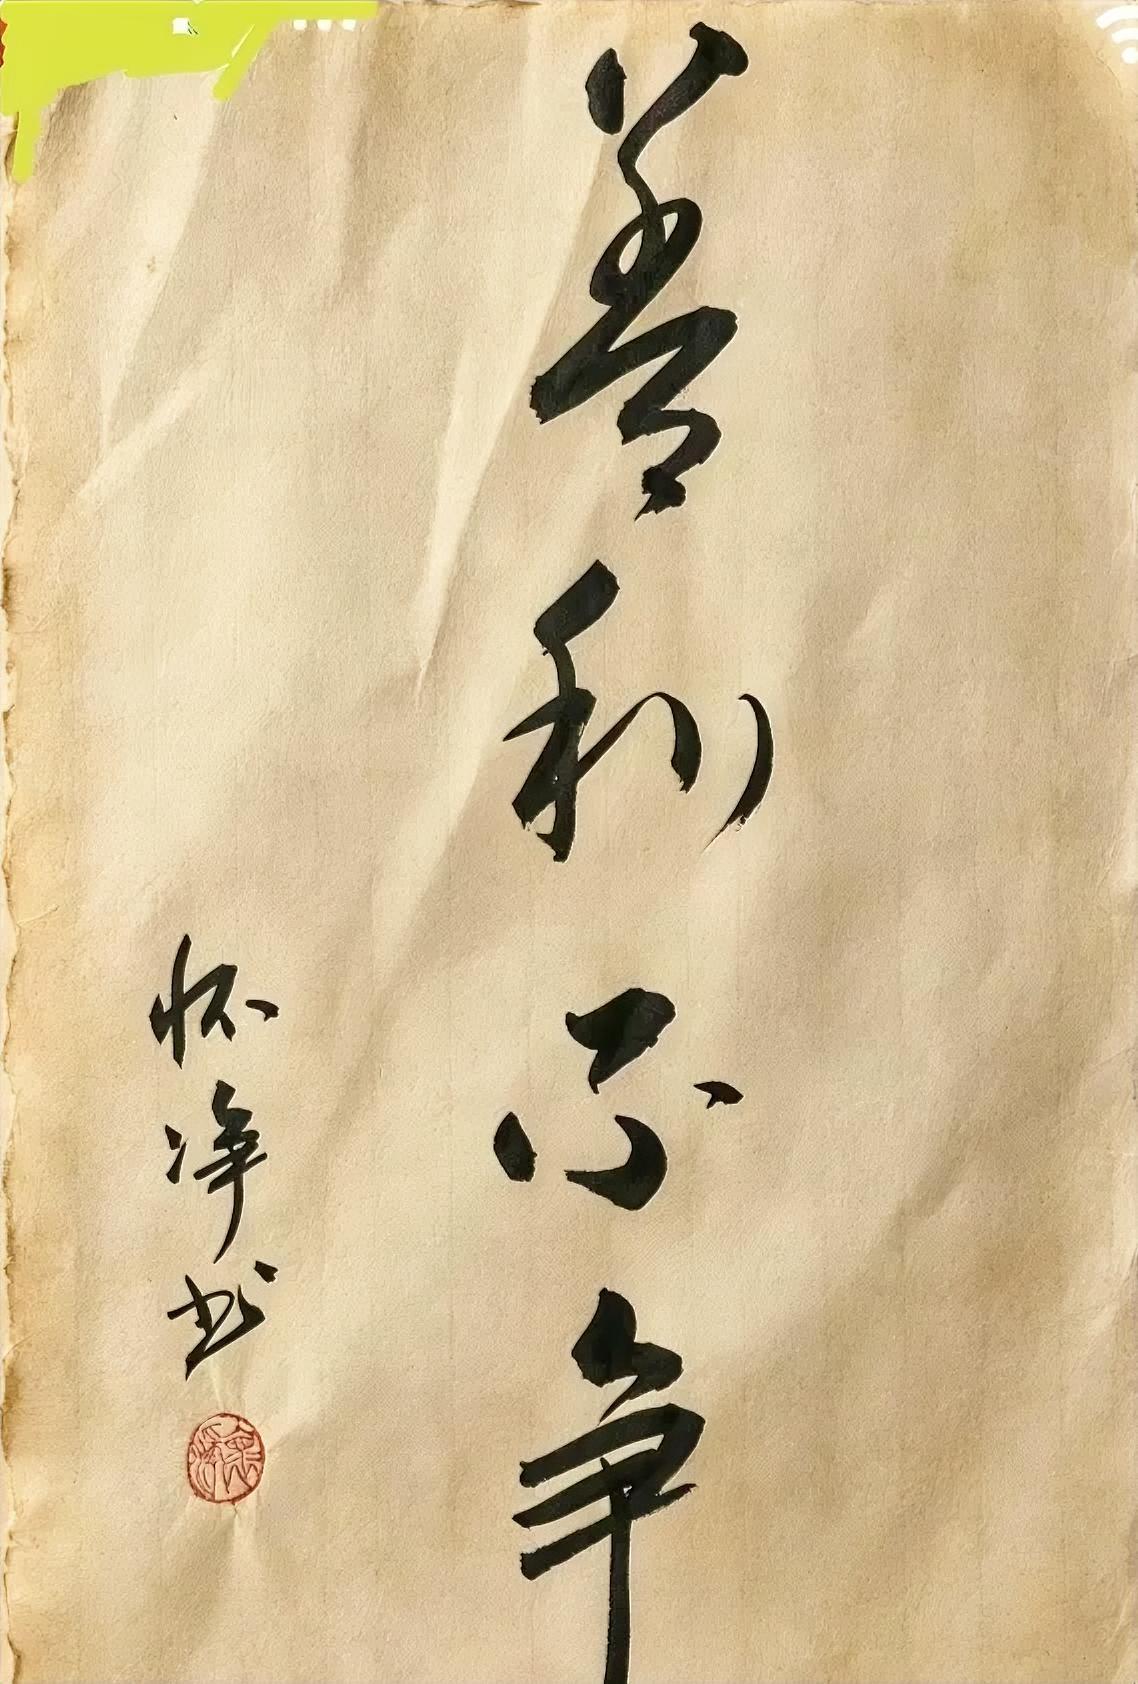 善利不争
怀净书